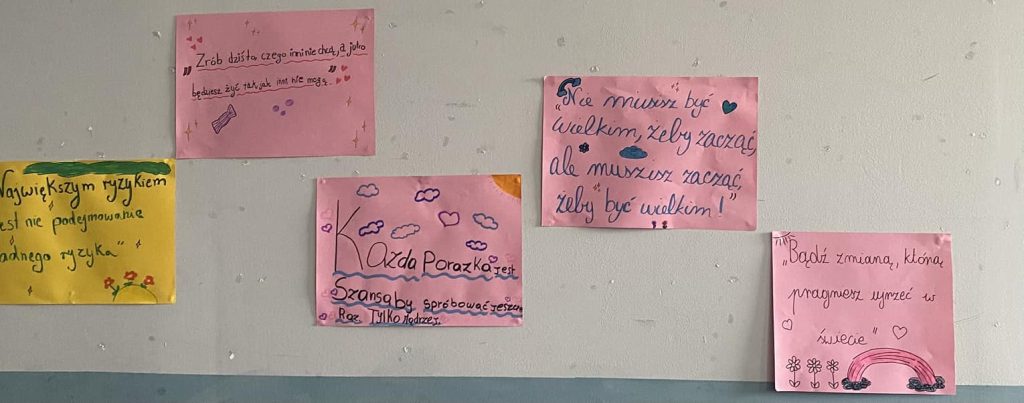 „Zrób dziś to, czego inni nie chcą, a jutro
będziesz żyć tak, jak inni nie mogą."
Największym ryzykiem
jest nie podejmowanie
żadnego ryzyka"
Każda Porażka jest
Szansą by spróbować jeszcze
Raz Tylko Mądrzej.
„Nie musisz być
wielkim, żeby zacząć,
ale musisz zacząć,
żeby być wielkim!"
„Bądź zmianą, którą
pragniesz ujrzeć w
świecie"